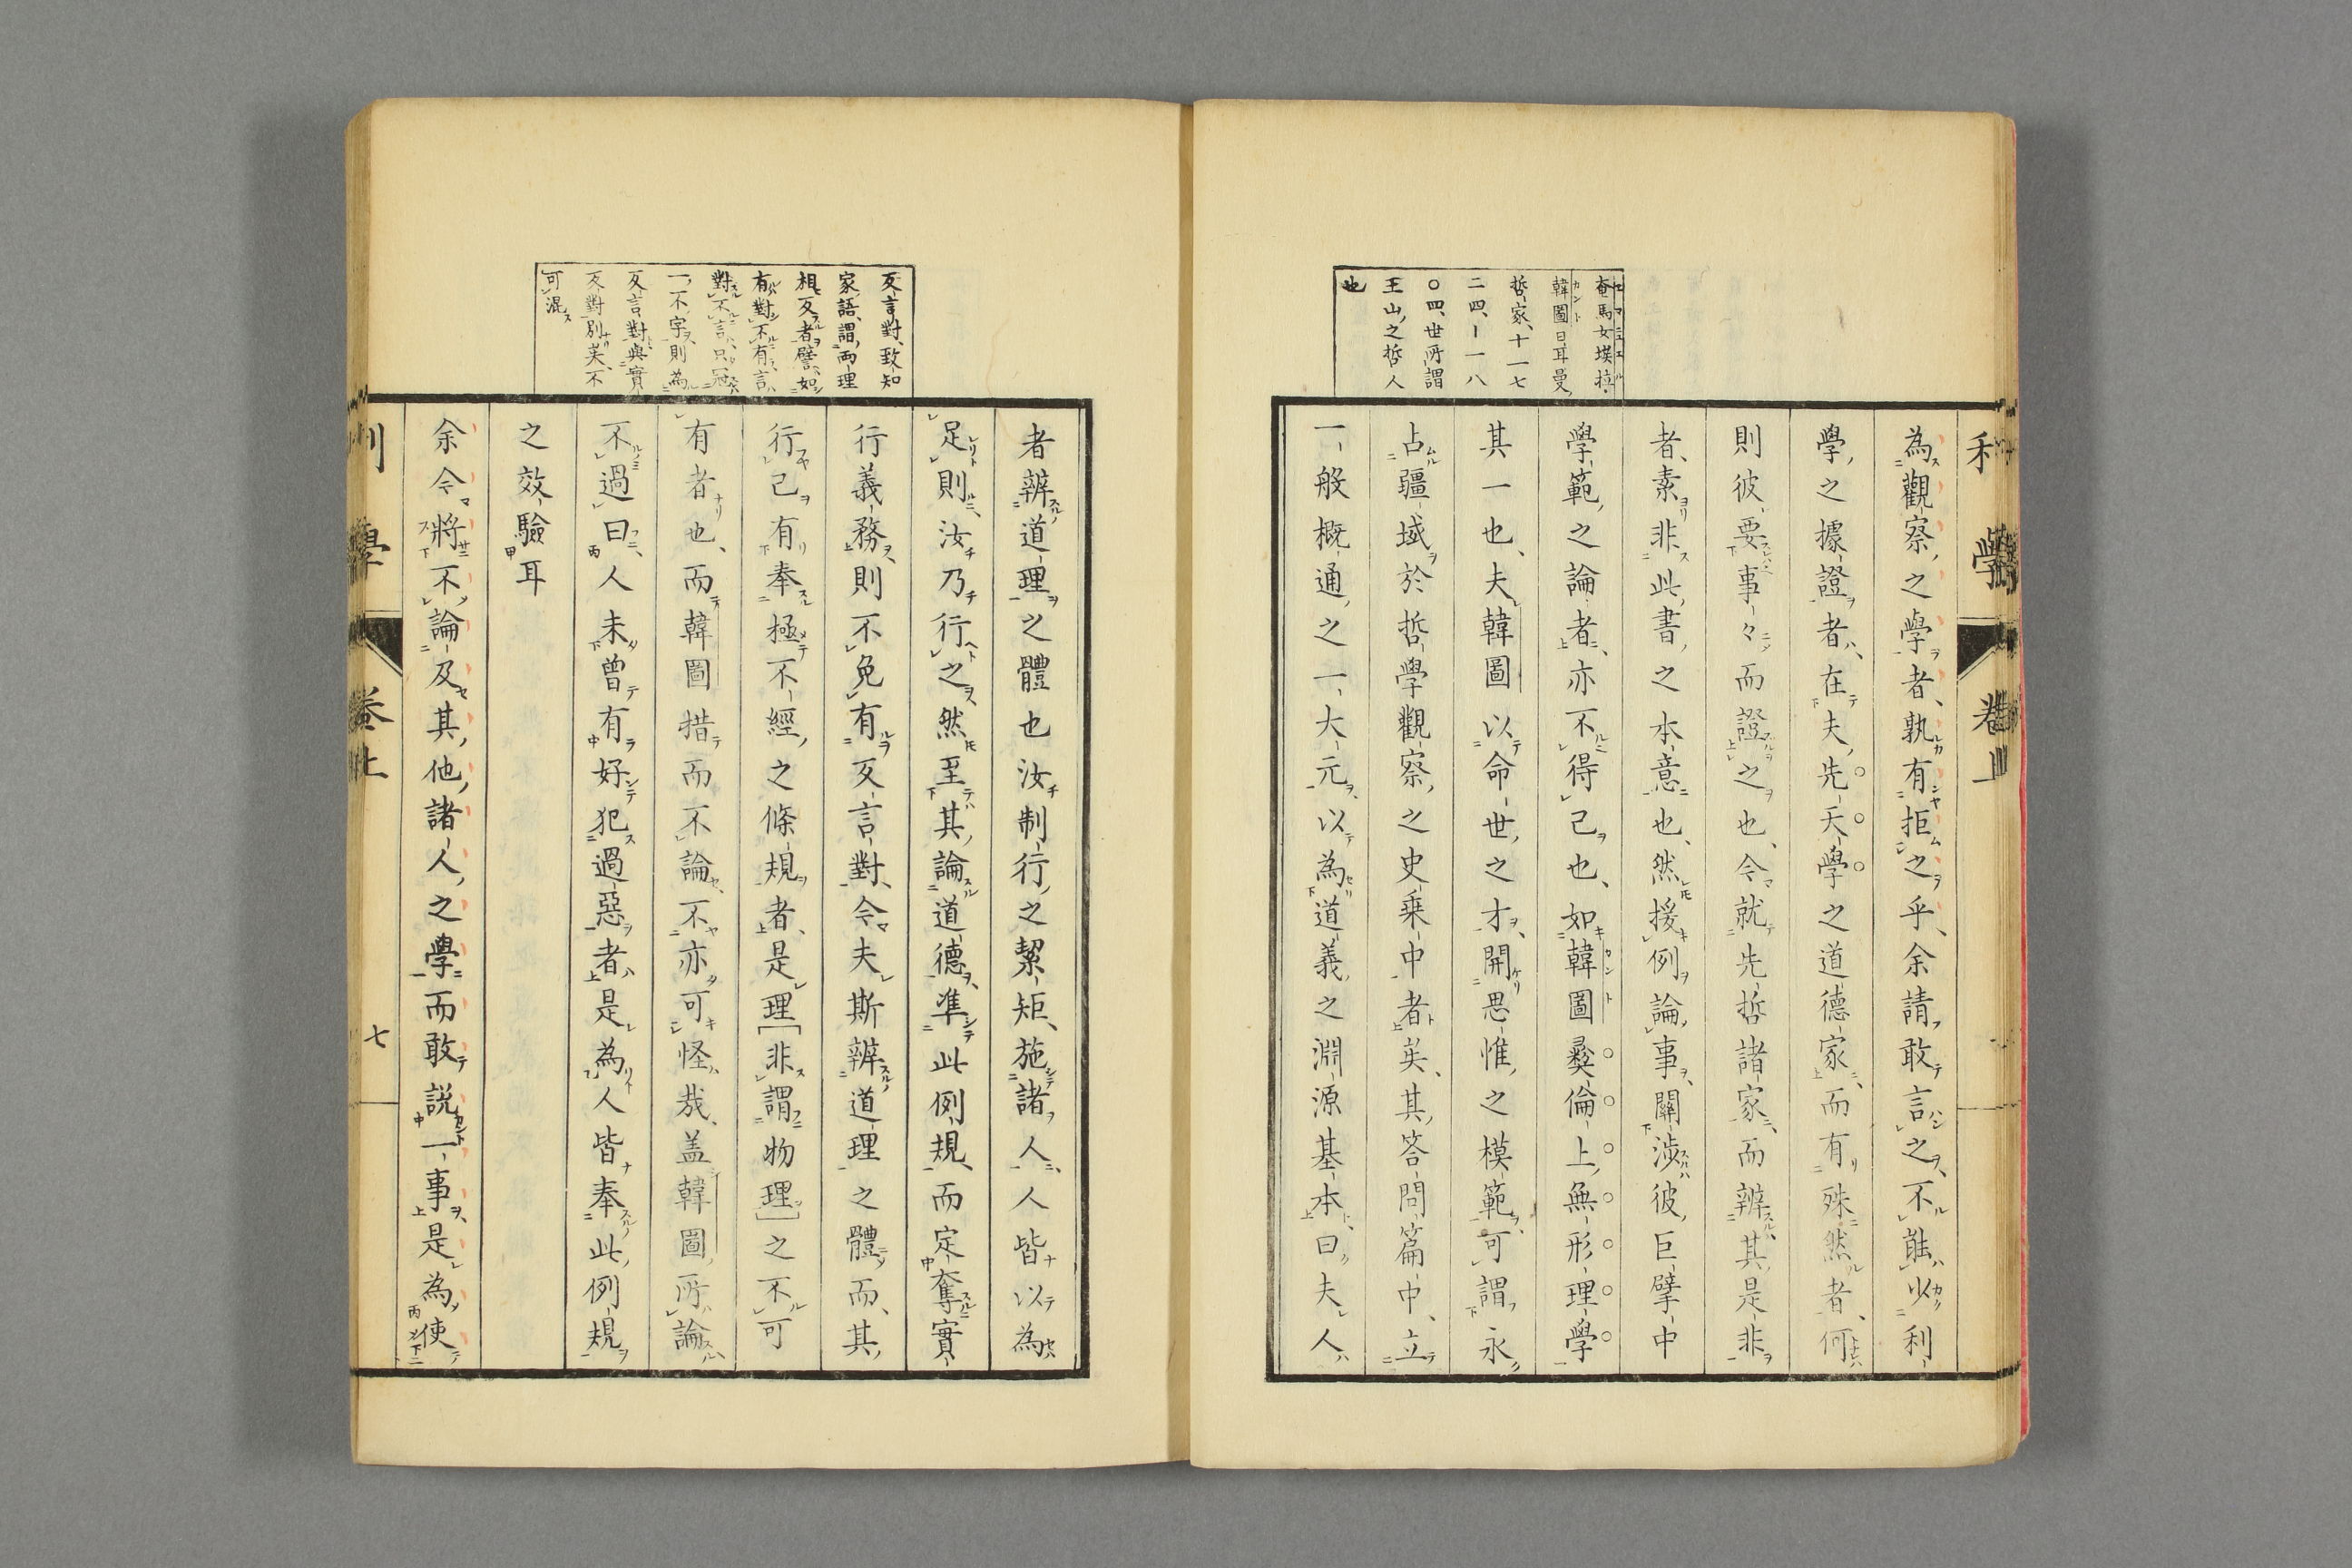 利學 卷上
奄馬女埃拉
韓圖日耳曼
哲家、十一七
二四、ー一八
〇四、世所謂
王山之哲人
也
為觀察之學者、孰有拒之乎、余請敢言之、不雖少利
學之據證者、在夫先天學之道德家、而有殊然者、何
則彼要事々而證之也、今就先哲諸家、而辨其是非
者、素非此書之本意也、然援例論事、關涉彼巨擘中
學範之論者、亦不得已也、如韓圖彜倫上無形理學
其一也、夫韓圖以命世之才、開思惟之模範、可謂永
占疆域於哲學觀察之史乗中者矣、其答問篇中、立
一般概通之一大元、以為道義之淵源基本、曰、夫人
反言對、致知
家語、謂兩理
相反者、譬如
有對不有、言
對不言、只冠
一不字、則為
反言對、與實
反對別矣、不
可混
者辨道理之體也汝制行之絜矩、施諸人、人皆以為
足、則汝乃行之、然至其論道德、準此例規、而定奪實
行義務、則不免有反言對、今夫斯辨道理之體而、其
行己有奉極不經之條規者、是理[非謂物理]之不可
有者也、而韓圖措而不論、不亦可怪哉、盖韓圖所論
不過曰人未曾有好犯過惡者、是為人皆奉此例規
之效驗耳
余今將不論及其他諸人之學而敢説一事、是為使
利學 卷上 七